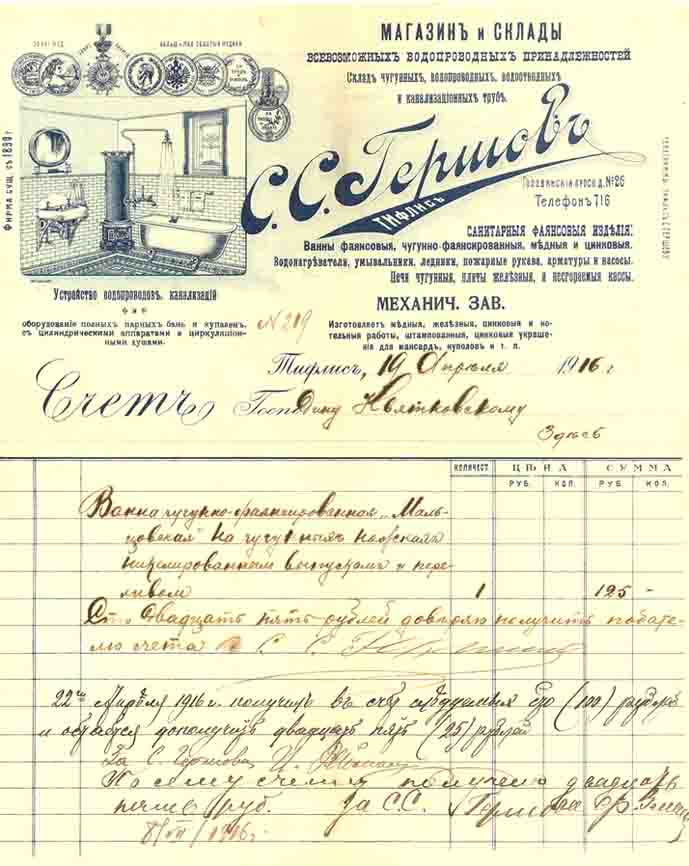 МАГАЗИНЪ и СКЛАДЫ
ВСЕВОЗМОЖНЫХЪ ВОДОПРОВОДНЫХЪ ПРИНАДЛЕЖНОСТЕЙ
Складъ чугунныхъ, водопроводныхъ, водоотводныхъ
и канализаціонныхъ трубъ.
С. С. Гершовъ
ТИФЛИСЪ
Головинскій просп. д. №26
Телефонъ 716
Фирма сущ. съ 1890 г.
САНИТАРНЫЯ ФАЯНСОВЫЯ ИЗДѢЛІЯ:
Ванны фаянсовыя, чугунно-фаянсированныя, мѣдныя и цинковыя.
Водонагрѣватели, умывальники, ледники, пожарные рукава, арматуры и насосы.
Печи чугунныя, плиты желѣзныя, и несгораемыя кассы.
Устройство водопроводовъ, канализацій
оборудованіе полныхъ парныхъ бань и купаленъ,
съ цилиндрическими аппаратами и циркуляціон-
ными душами.
N 219
МЕХАНИЧ. ЗАВ.
Изготовляетъ мѣдныя, желѣзныя, цинковыя и ко-
тельныя работы, штампованныя, цинковыя украше-
нія для мансардъ, куполовъ и т. п.
Тифлисъ, 19 Апрѣля 1916 г.
Счетъ Господину Квятковскому
Здѣсь
КОЛИЧЕСТ. ЦѢНА СУММА
РУБ. КОП. РУБ. КОП.
Ванна чугунно-фаянсированная „Маль-
цовская" на чугунныхъ ножкахъ
никелированнымъ выпускомъ и пере-
ливомъ 1 125 -
Сто двадцать пять рублей довѣряю получить подате-
лю счета С. С.
22го Апрѣля 1916 г. получилъ въ счетъ слѣдуемыхъ сто (100) рублей
и остается дополучить двадцать пять (25) рублей
За С. Гершова
По сему счету получено двадцать
пять руб. За С.С. Гершова
8/VII/1916 г.